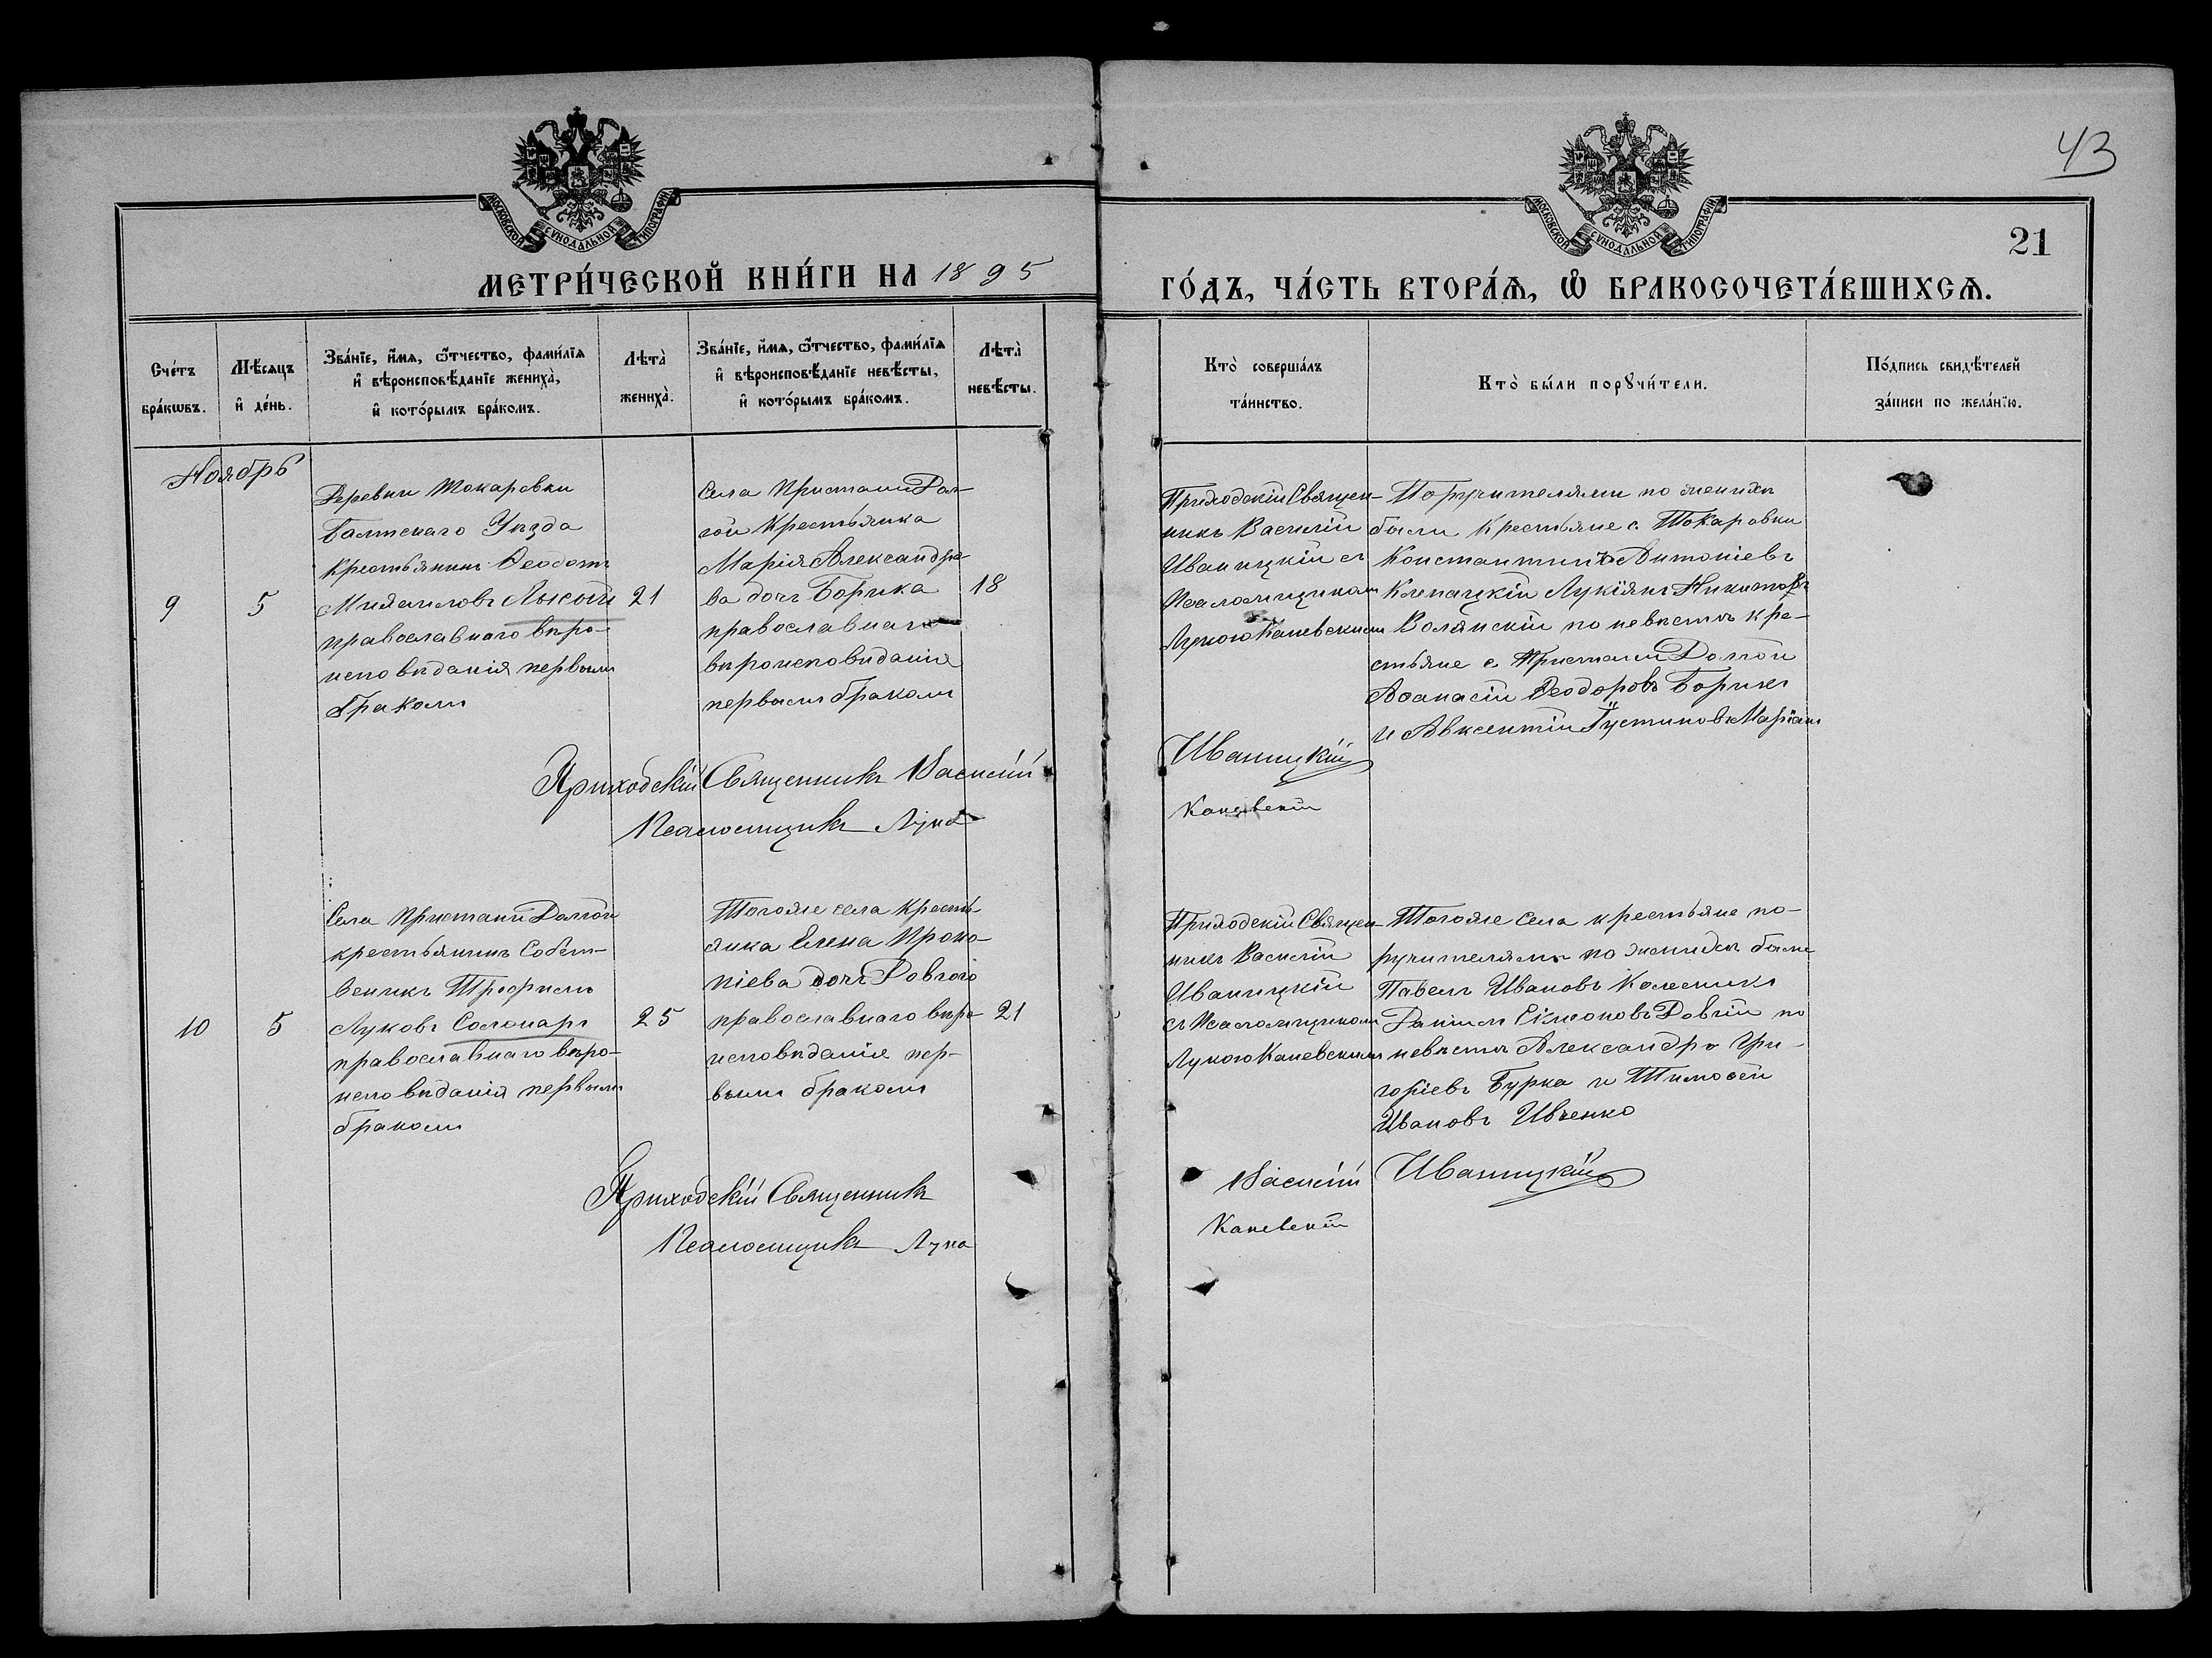 43
МОСКОВСКОЙ СУНОДАЛЬНОЙ ТИПОГРАФІИ
МОСКОВСКОЙ СУНОДАЛЬНОЙ ТИПОГРАФІИ
21
МЕТРИ́ЧЕСКОЙ КНИ́ГИ НА 1895
ГО́ДЪ, ЧА́СТЬ ВТОРА́Ѧ, Ѡ҆ БРАКОСОЧЕТА́ВШИХСѦ.
Сче́тъ
бра́кѡвъ.
Мѣ́сѧцъ
и҆ де́нь.
Зва́нїе, и҆́мѧ, ѻ҆́тчество, фами́лїѧ
и҆ вѣроисповѣ́данїе жениха̀,
и҆ кото́рымъ бра́комъ.
Лѣта̀
жениха̀.
Зва́нїе, и҆́мѧ, ѻ҆́тчество, фами́лїѧ
и҆ вѣроисповѣ́данїе невѣ́сты,
и҆ кото́рымъ бра́комъ.
Лѣта̀
невѣ́сты.
Кто̀ соверша́лъ
та́инство.
Кто̀ бы́ли порꙋчи́тели.
По́дпись свидѣ́телей
за́писи по жела́нїю.
Ноябрь
9
5
Деревни Токаровки
Балтскаго Уѣзда
крестьянинъ Ѳеодотъ
Михаиловъ Лысый
православнаго вѣро-
исповѣданія первымъ
бракомъ
21
Села Пристани Дол-
гой Крестьянка
Марія Александро-
ва дочь Борика
православнаго
вѣроисповѣданія
первымъ бракомъ
18
Приходскій Священ-
никъ Василій
Иваницкій съ
Псаломщикомъ
Лукою Каневскимъ
Поручителями по женихѣ
были крестьяне с. Токаровки
Константинъ Антоніевъ
Клепацкій Лукіянъ Никитовъ
Волянскій по невѣстѣ кре-
стьяне с. Пристани Долгой
Аѳанасій Ѳеодоровъ Борикъ
и Авксентій Іустиновъ
Приходскій Священникъ Василій Иваницкій
Псаломщикъ Лука Каневскій
10
5
Села Пристани Долгой
крестьянинъ Собст-
веникъ Трофимъ
Луковъ Солонарь
православнаго вѣро-
исповѣданія первымъ
бракомъ
25
Тогоже села Кресть-
янка Елена Проко-
піева дочь Довгого
православнаго вѣро-
исповѣданія пер-
вымъ бракомъ
21
Приходскій Священ-
никъ Василій
Иваницкій
съ Псаломщикомъ
Лукою Каневскимъ
Тогоже села крестьяне по-
ручителями по женихѣ были
Павелъ Ивановъ Колесникъ
Даніилъ Сімеоновъ Довгій по
невѣстѣ Александръ Гри-
горіевъ Бурка и Тимоѳей
Ивановъ Ивченко
Приходскій Священникъ Василій Иваницкій
Псаломщикъ Лука Каневскій